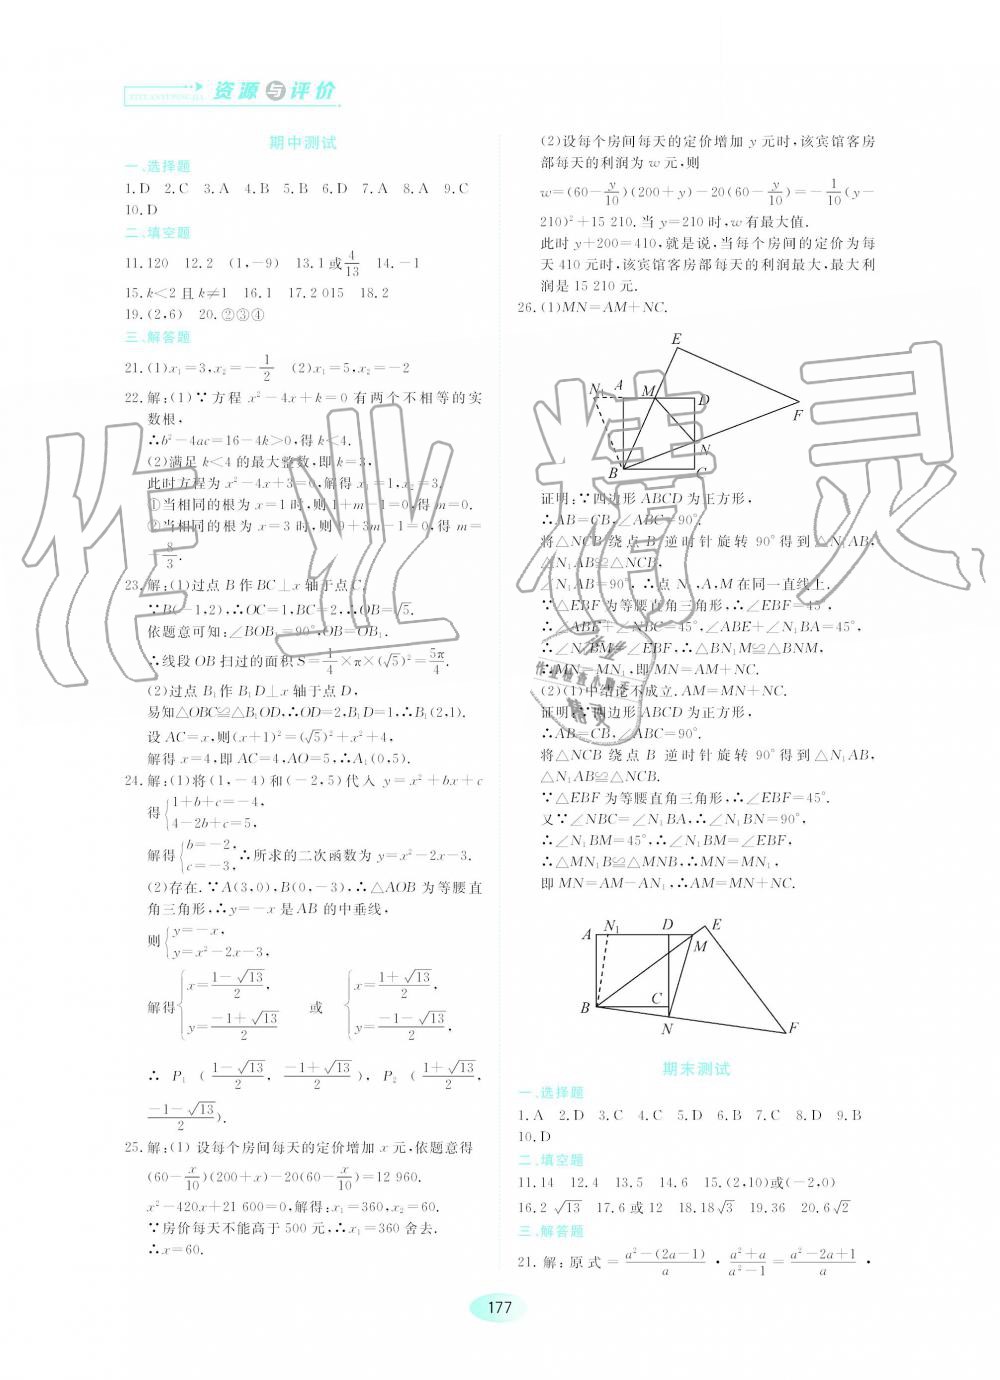 资源与评价
期中测试
一、选择题
1.D 2.C 3.A 4.B 5.B 6.D 7.A 8.A 9.C
10.D
二、填空题
11.120 12.2 (1,-9) 13.1或4/13 14.-1
15.k<2且k≠1 16.1 17.2 015 18.2
19.(2,6) 20.②③④
三、解答题
21.(1)x₁=3,x₂=-1/2 (2)x₁=5,x₂=-2
22.解:(1)∵方程 x²-4x+k=0有两个不相等的实
数根,
∴b²-4ac=16-4k>0,得k<4.
(2)满足k<4的最大整数,即k=3,
此时方程为x²-4x+3=0,解得x₁=1,x₂=3.
①当相同的根为x=1时,则1+m-1=0,得m=0.
②当相同的根为x=3时,则9+3m-1=0,得m=
-8/3.
23.解:(1)过点B作BC⊥x轴于点C,
∵B(-1,2),∴OC=1,BC=2,∴OB=√5.
依题意可知:∠BOB₁=90°,OB=OB₁.
∴线段OB扫过的面积S=1/4×π×(√5)²=5π/4.
(2)过点B₁作B₁D⊥x轴于点D,
易知△OBC≌△B₁OD,∴OD=2,B₁D=1,∴B₁(2,1).
设AC=x,则(x+1)²=(√5)²+x²+4,
解得x=4,即AC=4,AO=5,∴A₁(0,5).
24.解:(1)将(1,-4)和(-2,5)代入y=x²+bx+c
得{1+b+c=-4,
4-2b+c=5,
解得{b=-2,
c=-3, ∴所求的二次函数为y=x²-2x-3.
(2)存在.∵A(3,0),B(0,-3),∴△AOB为等腰直
角三角形,∴y=-x是AB的中垂线,
则{y=-x,
y=x²-2x-3,
解得{x=(1-√13)/2, 或 {x=(1+√13)/2,
y=(-1+√13)/2 y=(-1-√13)/2,
∴ P₁ ((1-√13)/2, (-1+√13)/2), P₂ ((1+√13)/2,
(-1-√13)/2).
25.解:(1)设每个房间每天的定价增加x元,依题意得
(60-x/10)(200+x)-20(60-x/10)=12 960.
x²-420x+21 600=0,解得:x₁=360,x₂=60.
∵房价每天不能高于500元,∴x₁=360舍去.
∴x=60.
(2)设每个房间每天的定价增加y元时,该宾馆客房
部每天的利润为w元,则
w=(60-y/10)(200+y)-20(60-y/10)=-1/10(y-
210)²+15 210.当y=210时,w有最大值.
此时y+200=410,就是说,当每个房间的定价为每
天410元时,该宾馆客房部每天的利润最大,最大利
润是15 210元.
26.(1)MN=AM+NC.
E
N₁ A M D
F
N
B C
证明:∵四边形ABCD为正方形,
∴AB=CB,∠ABC=90°.
将△NCB绕点B逆时针旋转90°得到△N₁AB,
△N₁AB≌△NCB,
∠N₁AB=90°,∴点N₁,A,M在同一直线上.
∵△EBF为等腰直角三角形,∴∠EBF=45°,
∴∠ABE+∠NBC=45°,∠ABE+∠N₁BA=45°,
∴∠N₁BM=∠EBF,∴△BN₁M≌△BNM,
∴MN=MN₁,即MN=AM+NC.
(2)(1)中结论不成立.AM=MN+NC.
证明:∵四边形ABCD为正方形,
∴AB=CB,∠ABC=90°.
将△NCB绕点B逆时针旋转90°得到△N₁AB,
△N₁AB≌△NCB.
∵△EBF为等腰直角三角形,∴∠EBF=45°.
又∵∠NBC=∠N₁BA,∴∠N₁BN=90°,
∴∠N₁BM=45°,∴∠N₁BM=∠EBF,
∴△MN₁B≌△MNB,∴MN=MN₁,
即MN=AM-AN₁,∴AM=MN+NC.
A N₁ D E
M
B C
N F
期末测试
一、选择题
1.A 2.D 3.C 4.C 5.D 6.B 7.C 8.D 9.B
10.D
二、填空题
11.14 12.4 13.5 14.6 15.(2,10)或(-2,0)
16.2√13 17.6或12 18.18√3 19.36 20.6√2
三、解答题
21.解:原式=(a²-(2a-1))/a·(a²+a)/(a²-1)=(a²-2a+1)/a·
177
作业精灵